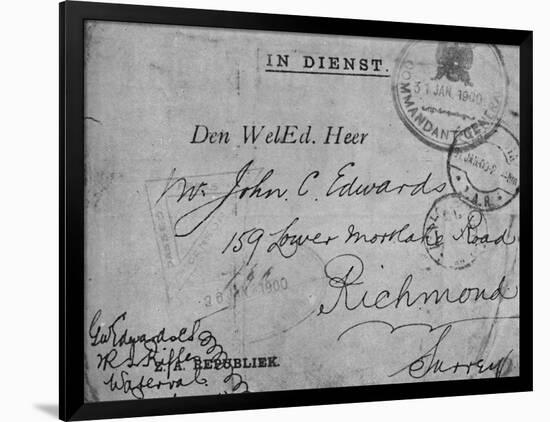 IN DIENST.
COMMANDANT GENERAL
31 JAN. 1900
Den WelEd. Heer
Mr John. C. Edwards
159 Lower Mortlake Road
Richmond
Surrey
PASSED
CENSOR
26 1900
Z. A. REPUBLIEK.
Waterval